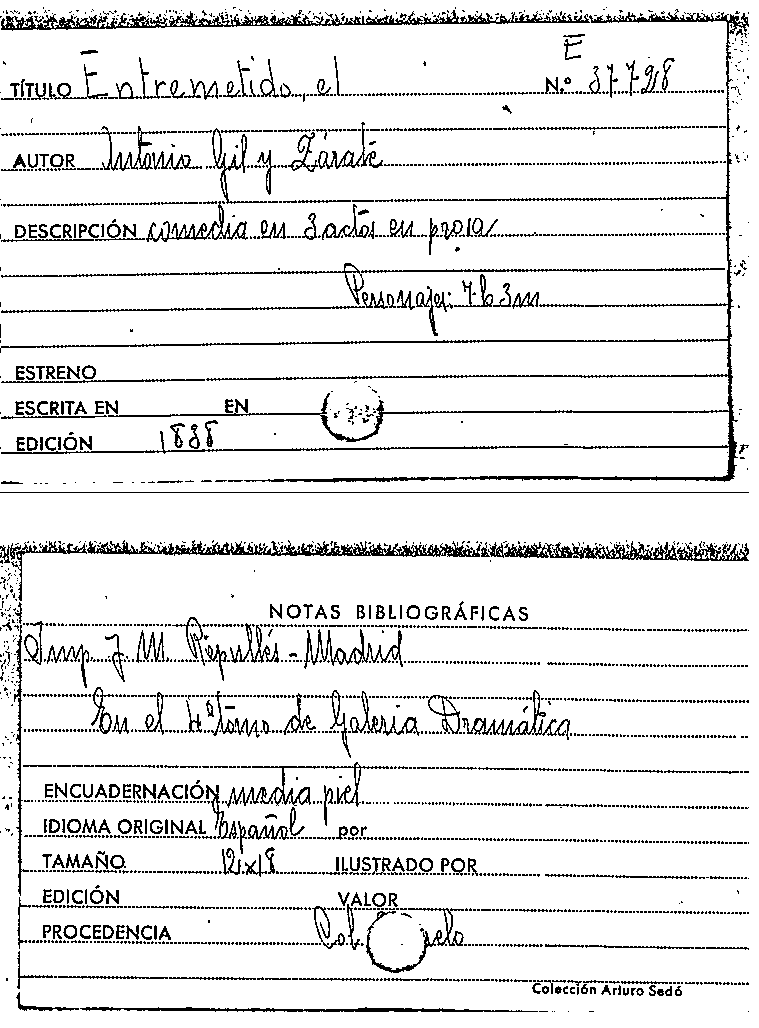 E
TÍTULO Entremetido, el N.º 37728
AUTOR Antonio Gil y Zárate
DESCRIPCIÓN comedia en 3 actos en prosa
Personajes: 7 h 3 m
ESTRENO
ESCRITA EN EN
EDICIÓN 1838
NOTAS BIBLIOGRÁFICAS
Imp J. M. Repullés - Madrid
En el 4º tomo de Galeria Dramática
ENCUADERNACIÓN media piel
IDIOMA ORIGINAL Español por
TAMAÑO 12x18 ILUSTRADO POR
EDICIÓN VALOR
PROCEDENCIA
Colección Arturo Sedó